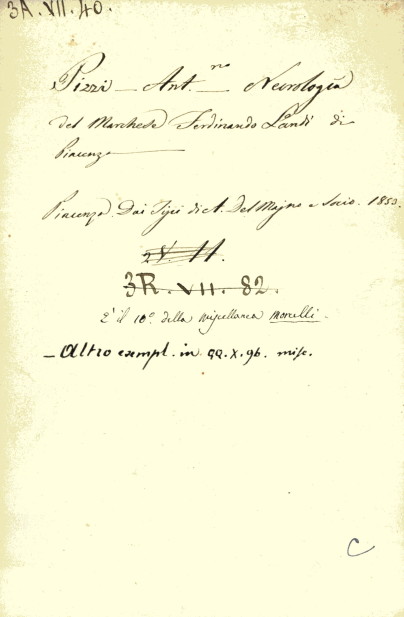 3A. VII. 40.
Pizzi — Ant.no — Necrologia
del Marchese Ferdinando Landi di
Piacenza
Piacenza. Dai Tipi di A. Del Majno e Socio. 1853.
11.
3R. VII. 82.
È il 10° della Miscellanea Morcelli.
— Altro exempl. in QQ.X.96. misc.
C